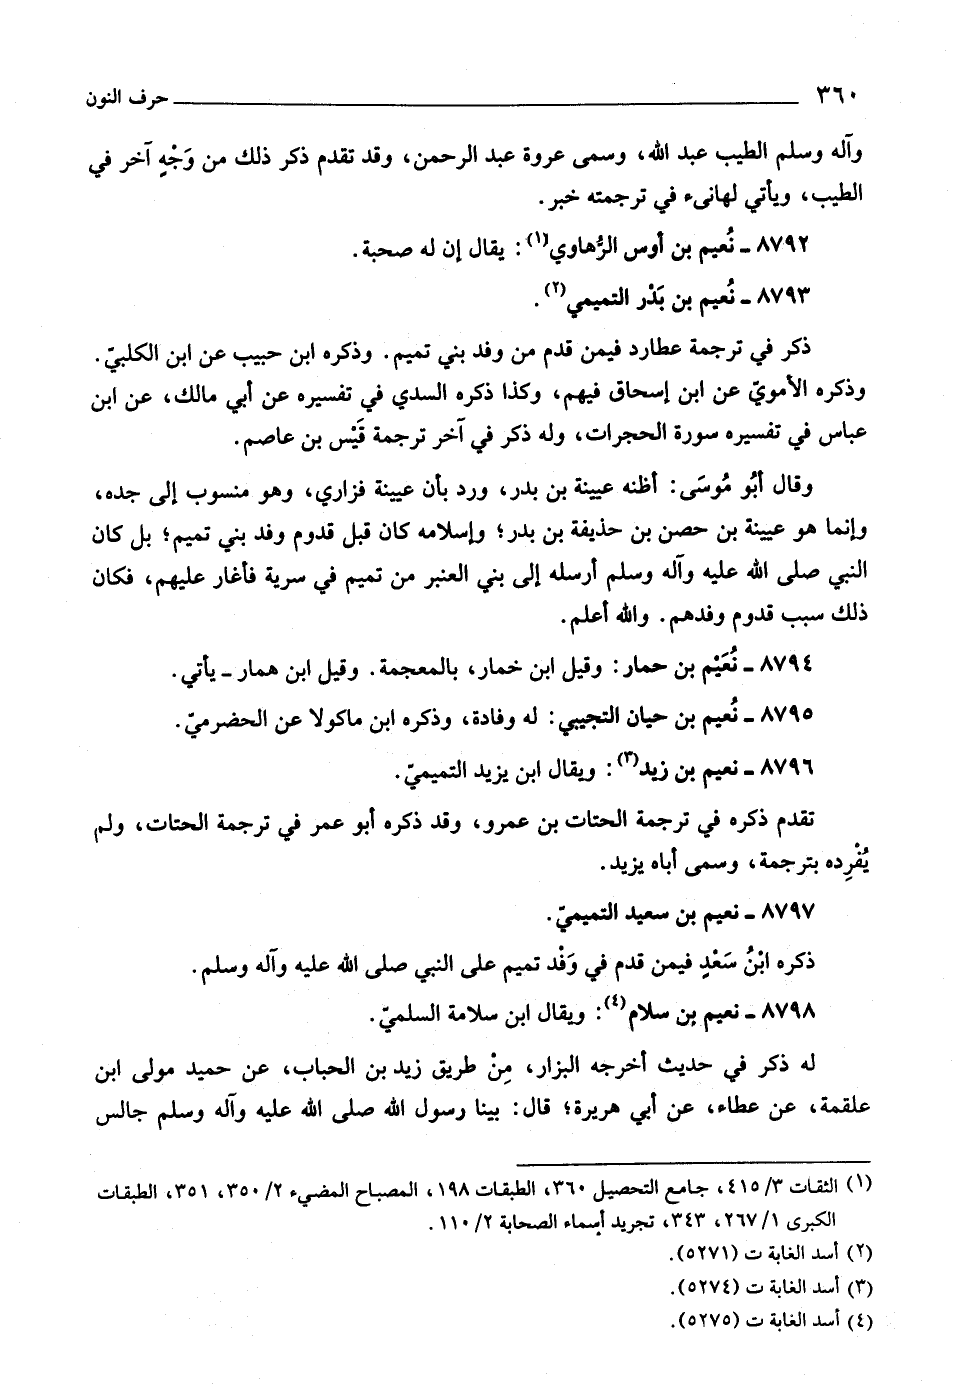 ٣٦٠ حرف النون
وآله وسلم الطيب عبد الله، وسمى عروة عبد الرحمن، وقد تقدم ذكر ذلك من وَجْهٍ آخر في
الطيب، ويأتي لهانىء في ترجمته خبر.
٨٧٩٢ ـ نُعيم بن أوس الرُّهاوي(١): يقال إن له صحبة.
٨٧٩٣ ـ نُعيم بن بَدْر التميمي(٢).
ذكر في ترجمة عطارد فيمن قدم من وفد بني تميم. وذكره ابن حبيب عن ابن الكلبيّ.
وذكره الأمويّ عن ابن إسحاق فيهم، وكذا ذكره السدي في تفسيره عن أبي مالك، عن ابن
عباس في تفسيره سورة الحجرات، وله ذكر في آخر ترجمة قَيْس بن عاصم.
وقال أَبُو مُوسَى: أظنه عيينة بن بدر، ورد بأن عيينة فزاري، وهو منسوب إلى جده،
وإنما هو عيينة بن حصن بن حذيفة بن بدر؛ وإسلامه كان قبل قدوم وفد بني تميم؛ بل كان
النبي صلى الله عليه وآله وسلم أرسله إلى بني العنبر من تميم في سرية فأغار عليهم، فكان
ذلك سبب قدوم وفدهم. والله أعلم.
٨٧٩٤ ـ نُعَيْم بن حمار: وقيل ابن خمار، بالمعجمة. وقيل ابن همار ـ يأتي.
٨٧٩٥ ـ نُعيم بن حيان التجيبي: له وفادة، وذكره ابن ماكولا عن الحضرميّ.
٨٧٩٦ ـ نعيم بن زيد(٣): ويقال ابن يزيد التميميّ.
تقدم ذكره في ترجمة الحتات بن عمرو، وقد ذكره أبو عمر في ترجمة الحتات، ولم
يُفْرِده بترجمة، وسمى أباه يزيد.
٨٧٩٧ ـ نعيم بن سعيد التميميّ.
ذكره ابْنُ سَعْدٍ فيمن قدم في وَفْد تميم على النبي صلى الله عليه وآله وسلم.
٨٧٩٨ ـ نعيم بن سلام(٤): ويقال ابن سلامة السلميّ.
له ذكر في حديث أخرجه البزار، مِنْ طريق زيد بن الحباب، عن حميد مولى ابن
علقمة، عن عطاء، عن أبي هريرة؛ قال: بينا رسول الله صلى الله عليه وآله وسلم جالس
(١) الثقات ٣/ ٤١٥، جامع التحصيل ٣٦٠، الطبقات ١٩٨، المصباح المضيء ٢/ ٣٥٠، ٣٥١، الطبقات
الكبرى ١/ ٢٦٧، ٣٤٣، تجريد أسماء الصحابة ٢/ ١١٠.
(٢) أسد الغابة ت (٥٢٧١).
(٣) أسد الغابة ت (٥٢٧٤).
(٤) أسد الغابة ت (٥٢٧٥).